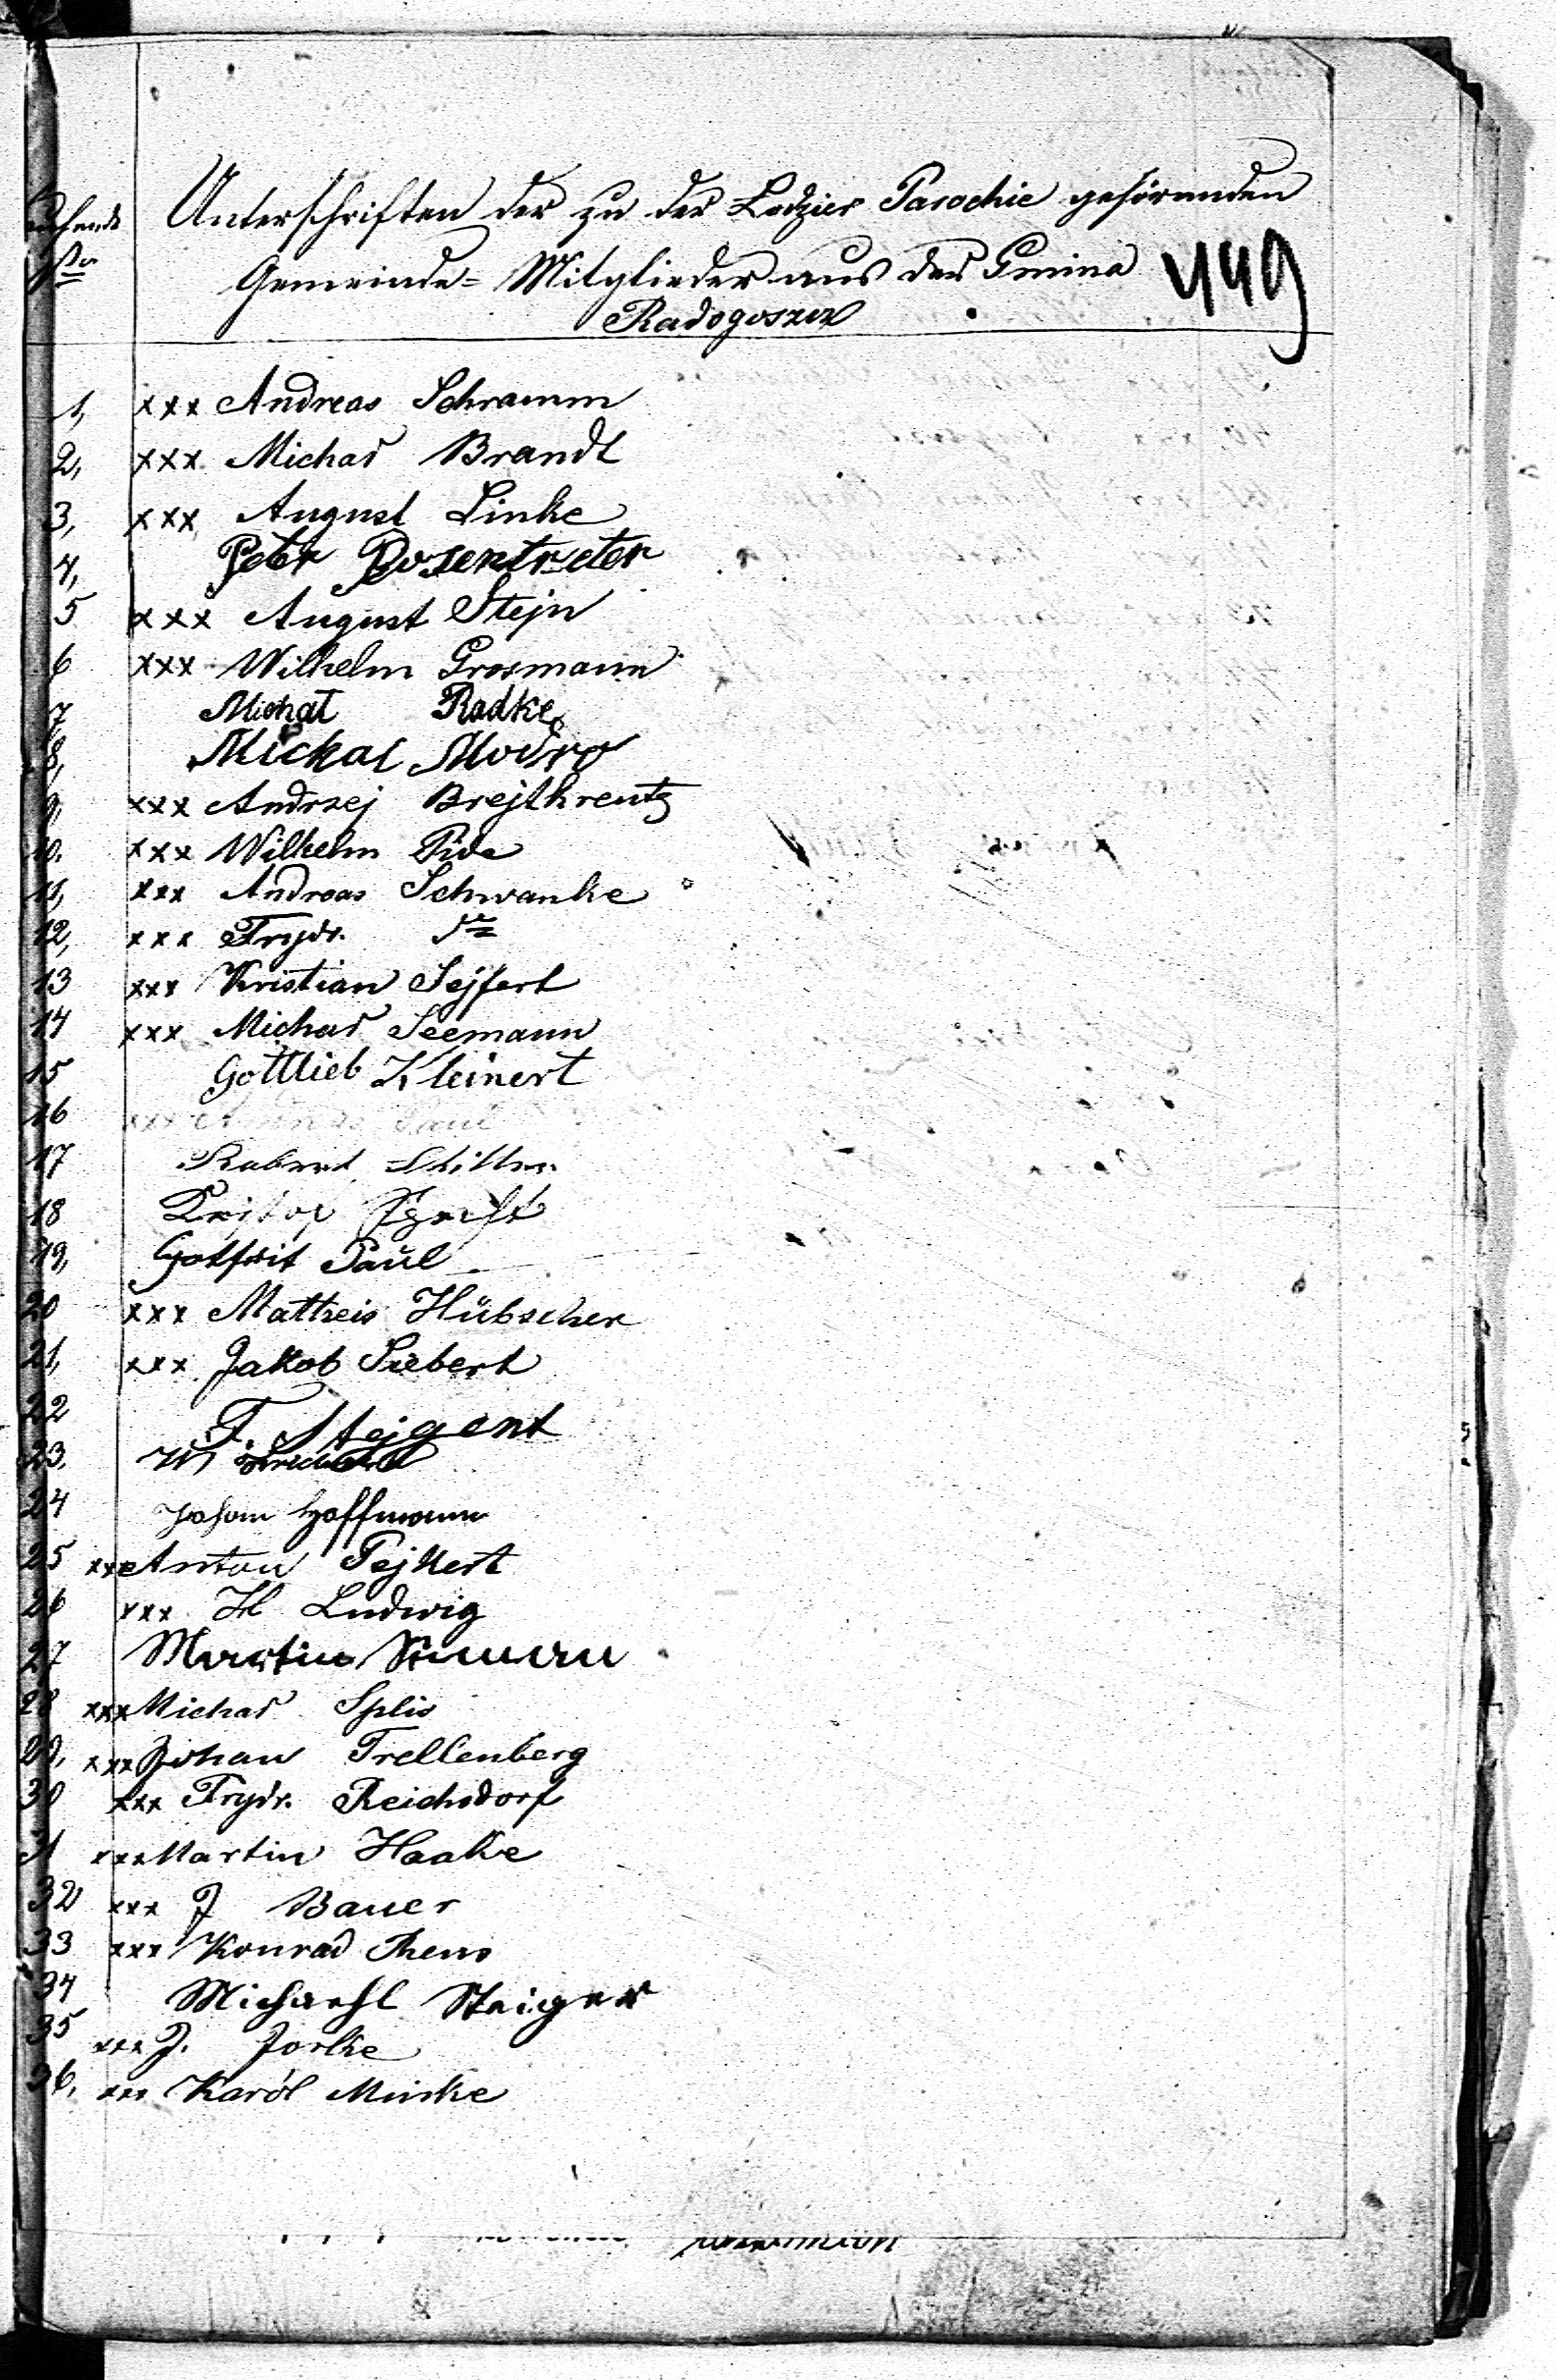 Laufende Unterschriften der zu der Lodzier Parochie gehörenden
No Gemeinde= Mitglieder aus der Gmina 449
Radogoszcz
1, xxx Andreas Schramm
2, xxx Michał Brandt
3, xxx August Linke
4, Peter Rosentreter
5 xxx August Stejn
6 xxx Wilhelm Grosmann
7, Michał Radke
8, Michał Modro
9, xxx Andrzej Brejtkreutz
10. xxx Wilhelm Pide
11, xxx Andreas Schwanke
12, xxx Frydr. dto
13 xxx Kristian Sejfert
14 xxx Michał Seemann
15 Gottlieb Kleinert
16 xxx Paul
17 Robert
18 Kristof
19, Gotfrit Paul
20 xxx Mattheis Hübscher
21, xxx Jakob Siebert
22 F. Stejgert
23. W
24 Johann Hoffmann
25 xxx Anton Pejkert
26 xxx H Ludwig
27 Martin
28 xxx Michał Splis
29, xxx Johan Trellenberg
30 xxx Frydr. Reichsdorf
31 xxx Martin Haake
32 xxx J Bauer
33 xxx Konrad Thens
34 Michaehl Steiger
35 xxx J. Jorke
36, xxx Karól Minke